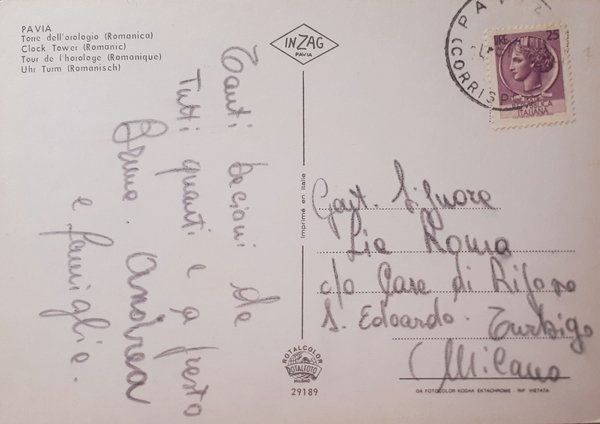 PAVIA
Torre dell'orologio (Romanica)
Clock Tower (Romanic)
Tour de l'horologe (Romanique)
Uhr Turm (Romanisch)
INZAG
PAVIA
Tanti bacioni da
Tutti quanti e a presto
Andrea
e famiglia.
Imprimé en Italie
ROTALCOLOR
ROTALFOTO
MILANO
29189
PAV
CORRIS
LIRE 25
REPUBBLICA
ITALIANA
Gent. Signora
Lia Roma
c/o Casa di Riposo
S. Edoardo. Turbigo
Milano
DA FOTOCOLOR KODAK EKTACHROME - RIP. VIETATA